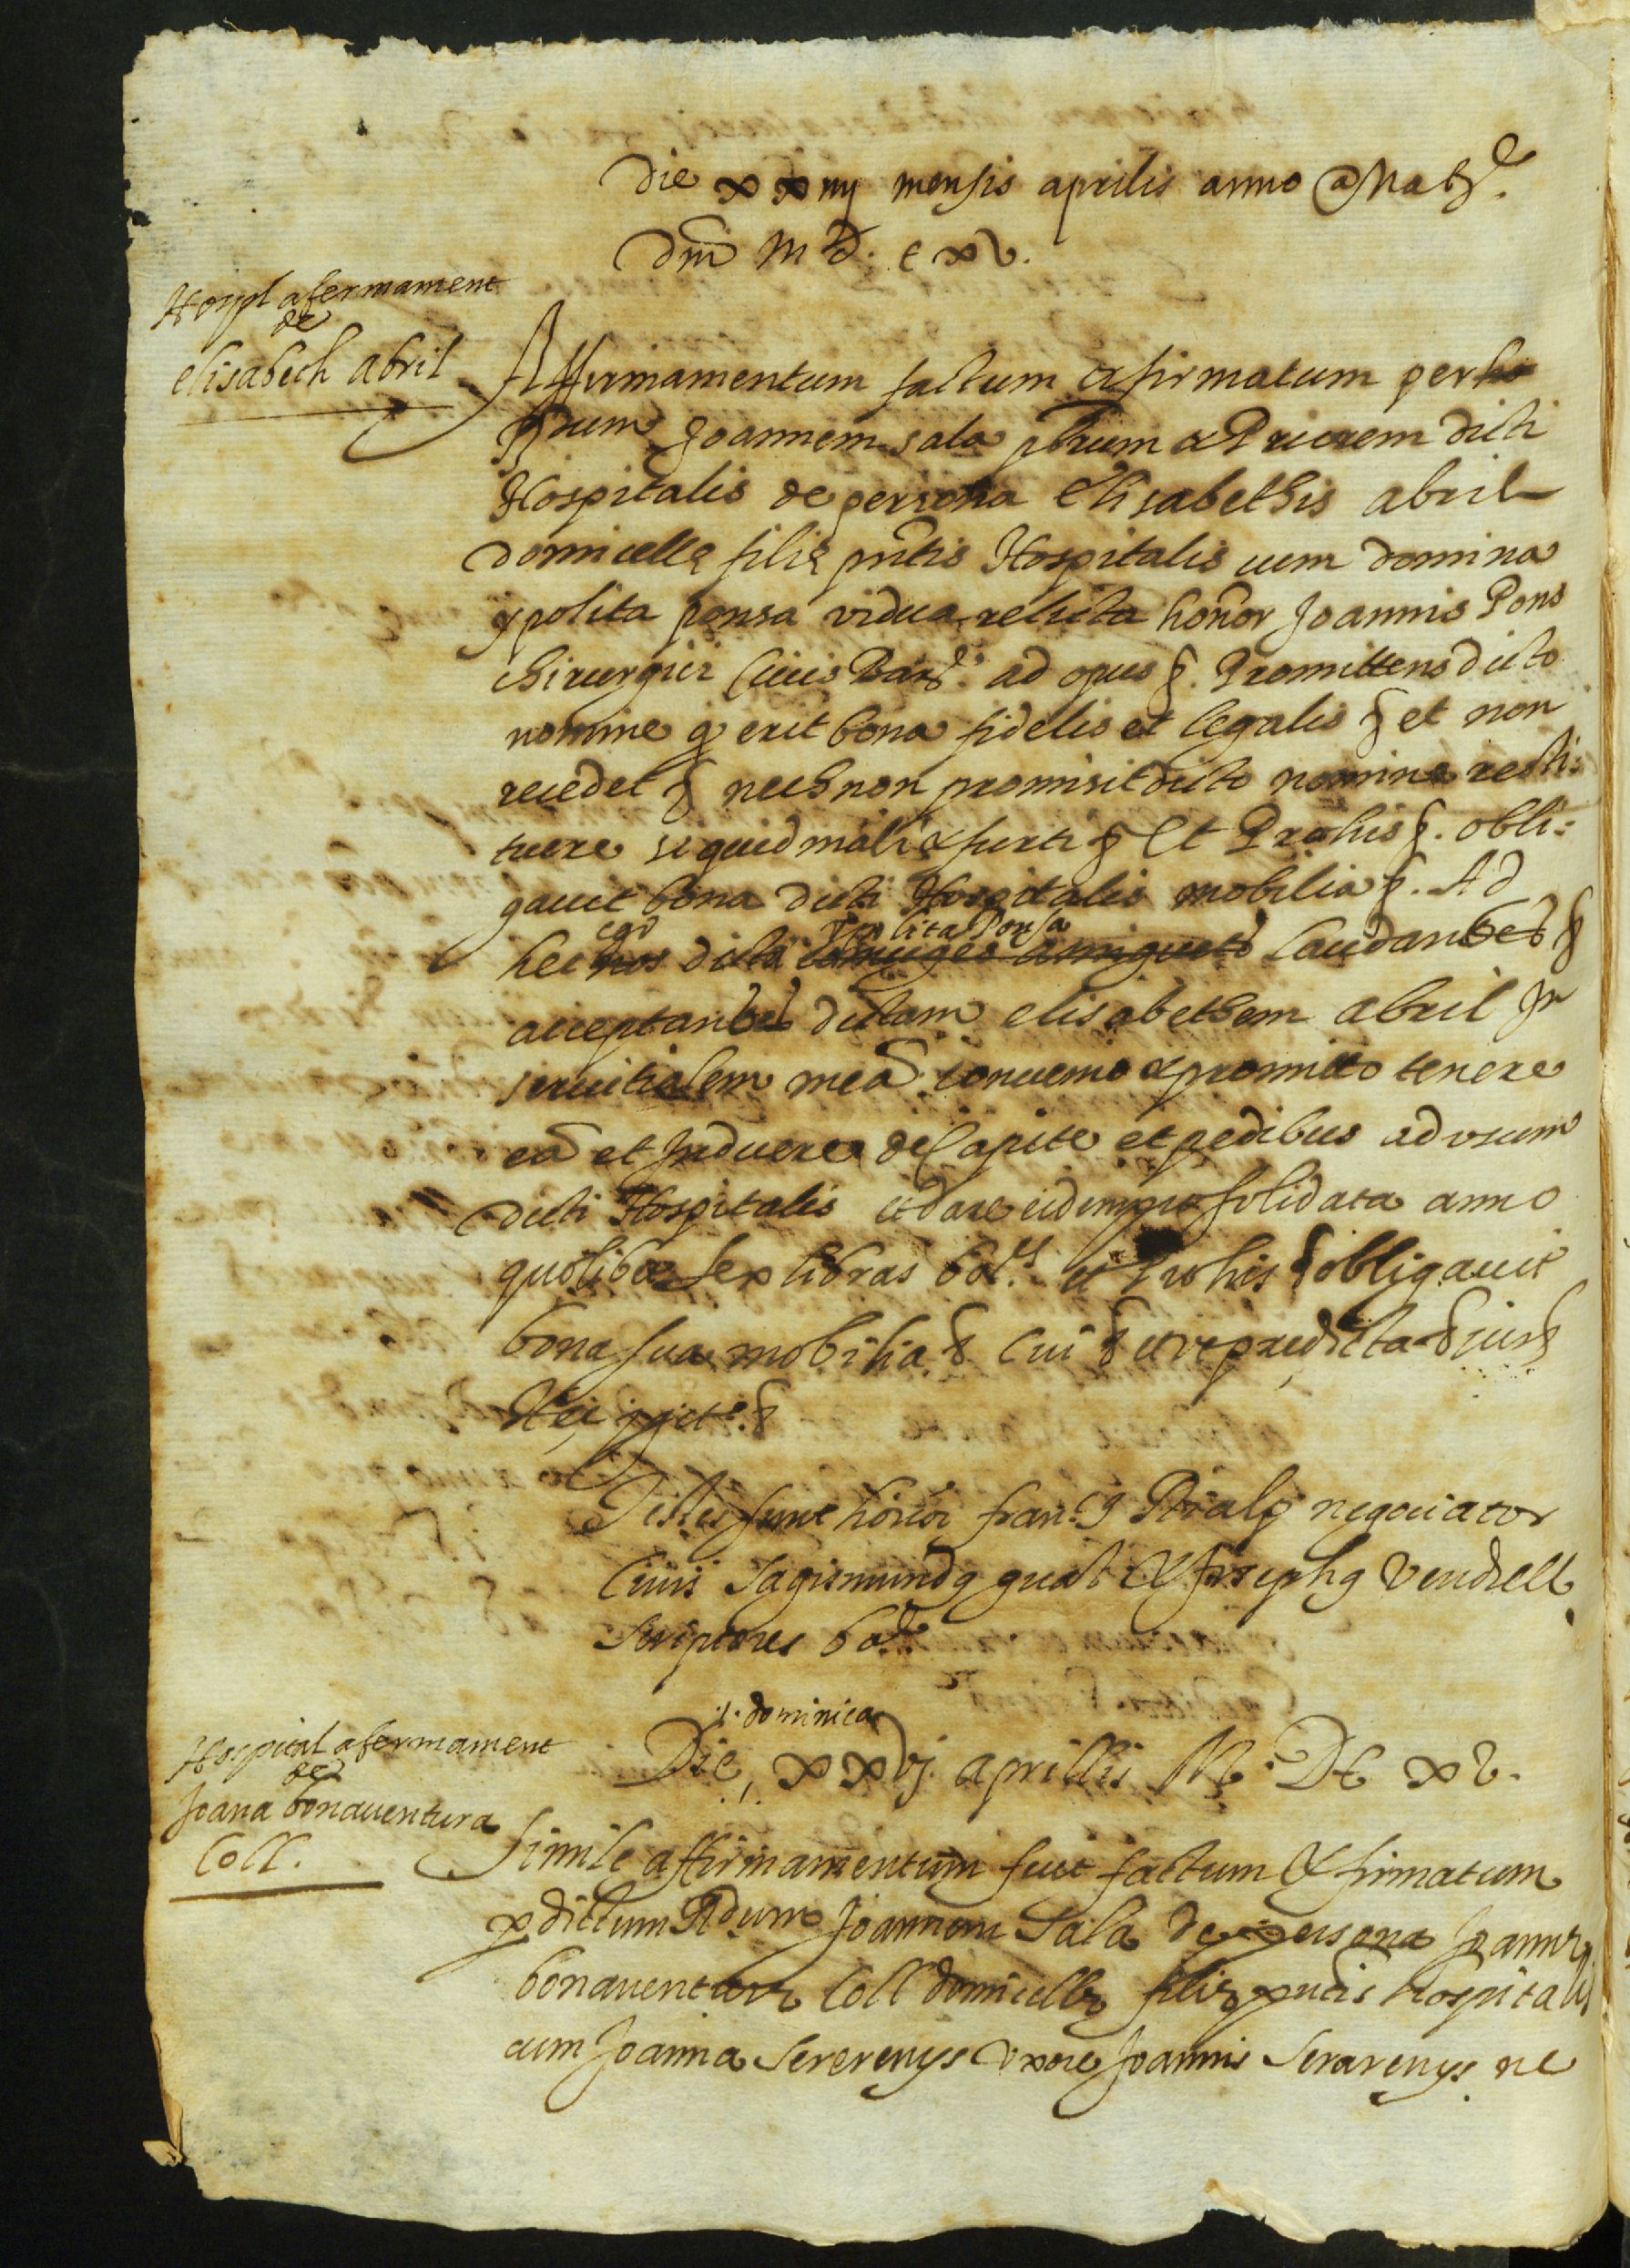 Die xxiiij mensis aprilis anno a Nat.e
Dnī M D. C xv.
Hospl afermament
de
elisabeth abril
Affirmamentum factum & firmatum per
Rdum Joannem sala pbrum & Priorem dicti
Hospitalis de persona Elisabethis abril
domicellę filię pntis Hospitalis cum domina
ypolita ponsa vidua relicta honor Joannis Pons
chirurgici Civis Barc. ad opus &. Promittens dicto
nomine q erit bona fidelis et legalis & et non
recedet & necnon promisit dicto nomine resti:
tuere si quid mali & furti & Et Pro his &. obli:
gavit bona dicti Hospitalis mobilia &. Ad
ego ypolita Ponsa
hec nos dicta coniuges laudantes &
acceptantes dictam elisabethem abril In
servitialem meā convenio & promitto tenere
eā et Induere de Capite et pedibus ad usum
dicti Hospitalis et dare eidem pro solidata anno
quolibet sex libras et Pro his & obligavit
bona sua mobilia & Cui & et ut predicta & jur &
Hec igitr &
Testes sunt honor fran.s Rialp negociator
Civis Sagismundq gual & Josephq Vendrell
scriptores bar.e
.1. dominica
Die, xxvj. aprillis M. DC xv.
Hospital afermament
de
Joana bonaventura
Coll.
Simile affirmamentum fuit factum & firmatum
p dictum Rdum Joannem Sala de persona Joannę
bonaventurę Coll domicellę filię pntis hospitalis
cum Joanna Sererenys uxore Joannis Serarenys ne